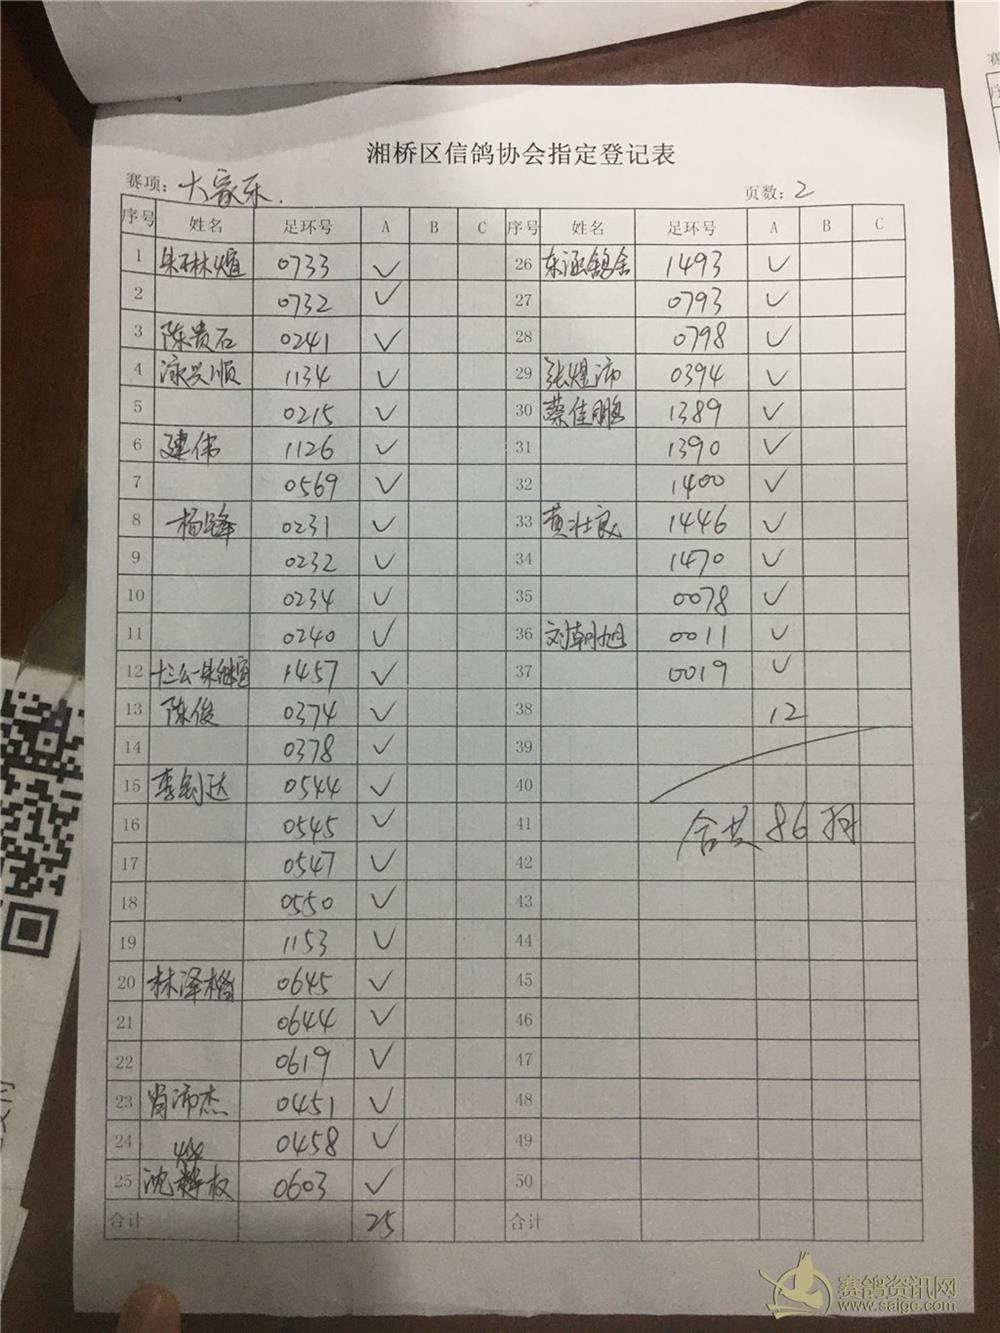 湘桥区信鸽协会指定登记表
赛项: 大家乐. 页数: 2
序号 姓名 足环号 A B C 序号 姓名 足环号 A B C
1 朱琳煊 0733 ✓ 26 东涵鸽舍 1493 ✓
2 0732 ✓ 27 0793 ✓
3 陈贵石 0241 ✓ 28 0798 ✓
4 泳兴顺 1134 ✓ 29 张煜沛 0394 ✓
5 0215 ✓ 30 蔡佳鹏 1389 ✓
6 建伟 1126 ✓ 31 1390 ✓
7 0569 ✓ 32 1400 ✓
8 杨锋 0231 ✓ 33 黄壮良 1446 ✓
9 0232 ✓ 34 1470 ✓
10 0234 ✓ 35 0078 ✓
11 0240 ✓ 36 刘朝旭 0011 ✓
12 1457 ✓ 37 0019 ✓
13 陈俊 0374 ✓ 38 12
14 0378 ✓ 39
15 李剑达 0544 ✓ 40
16 0545 ✓ 41 合共86羽
17 0547 ✓ 42
18 0550 ✓ 43
19 1153 ✓ 44
20 林泽楷 0645 ✓ 45
21 0644 ✓ 46
22 0619 ✓ 47
23 肖沛杰 0451 ✓ 48
24 0458 ✓ 49
25 沈 权 0603 ✓ 50
合计 25 合计
赛鸽资讯网
www.saige.com